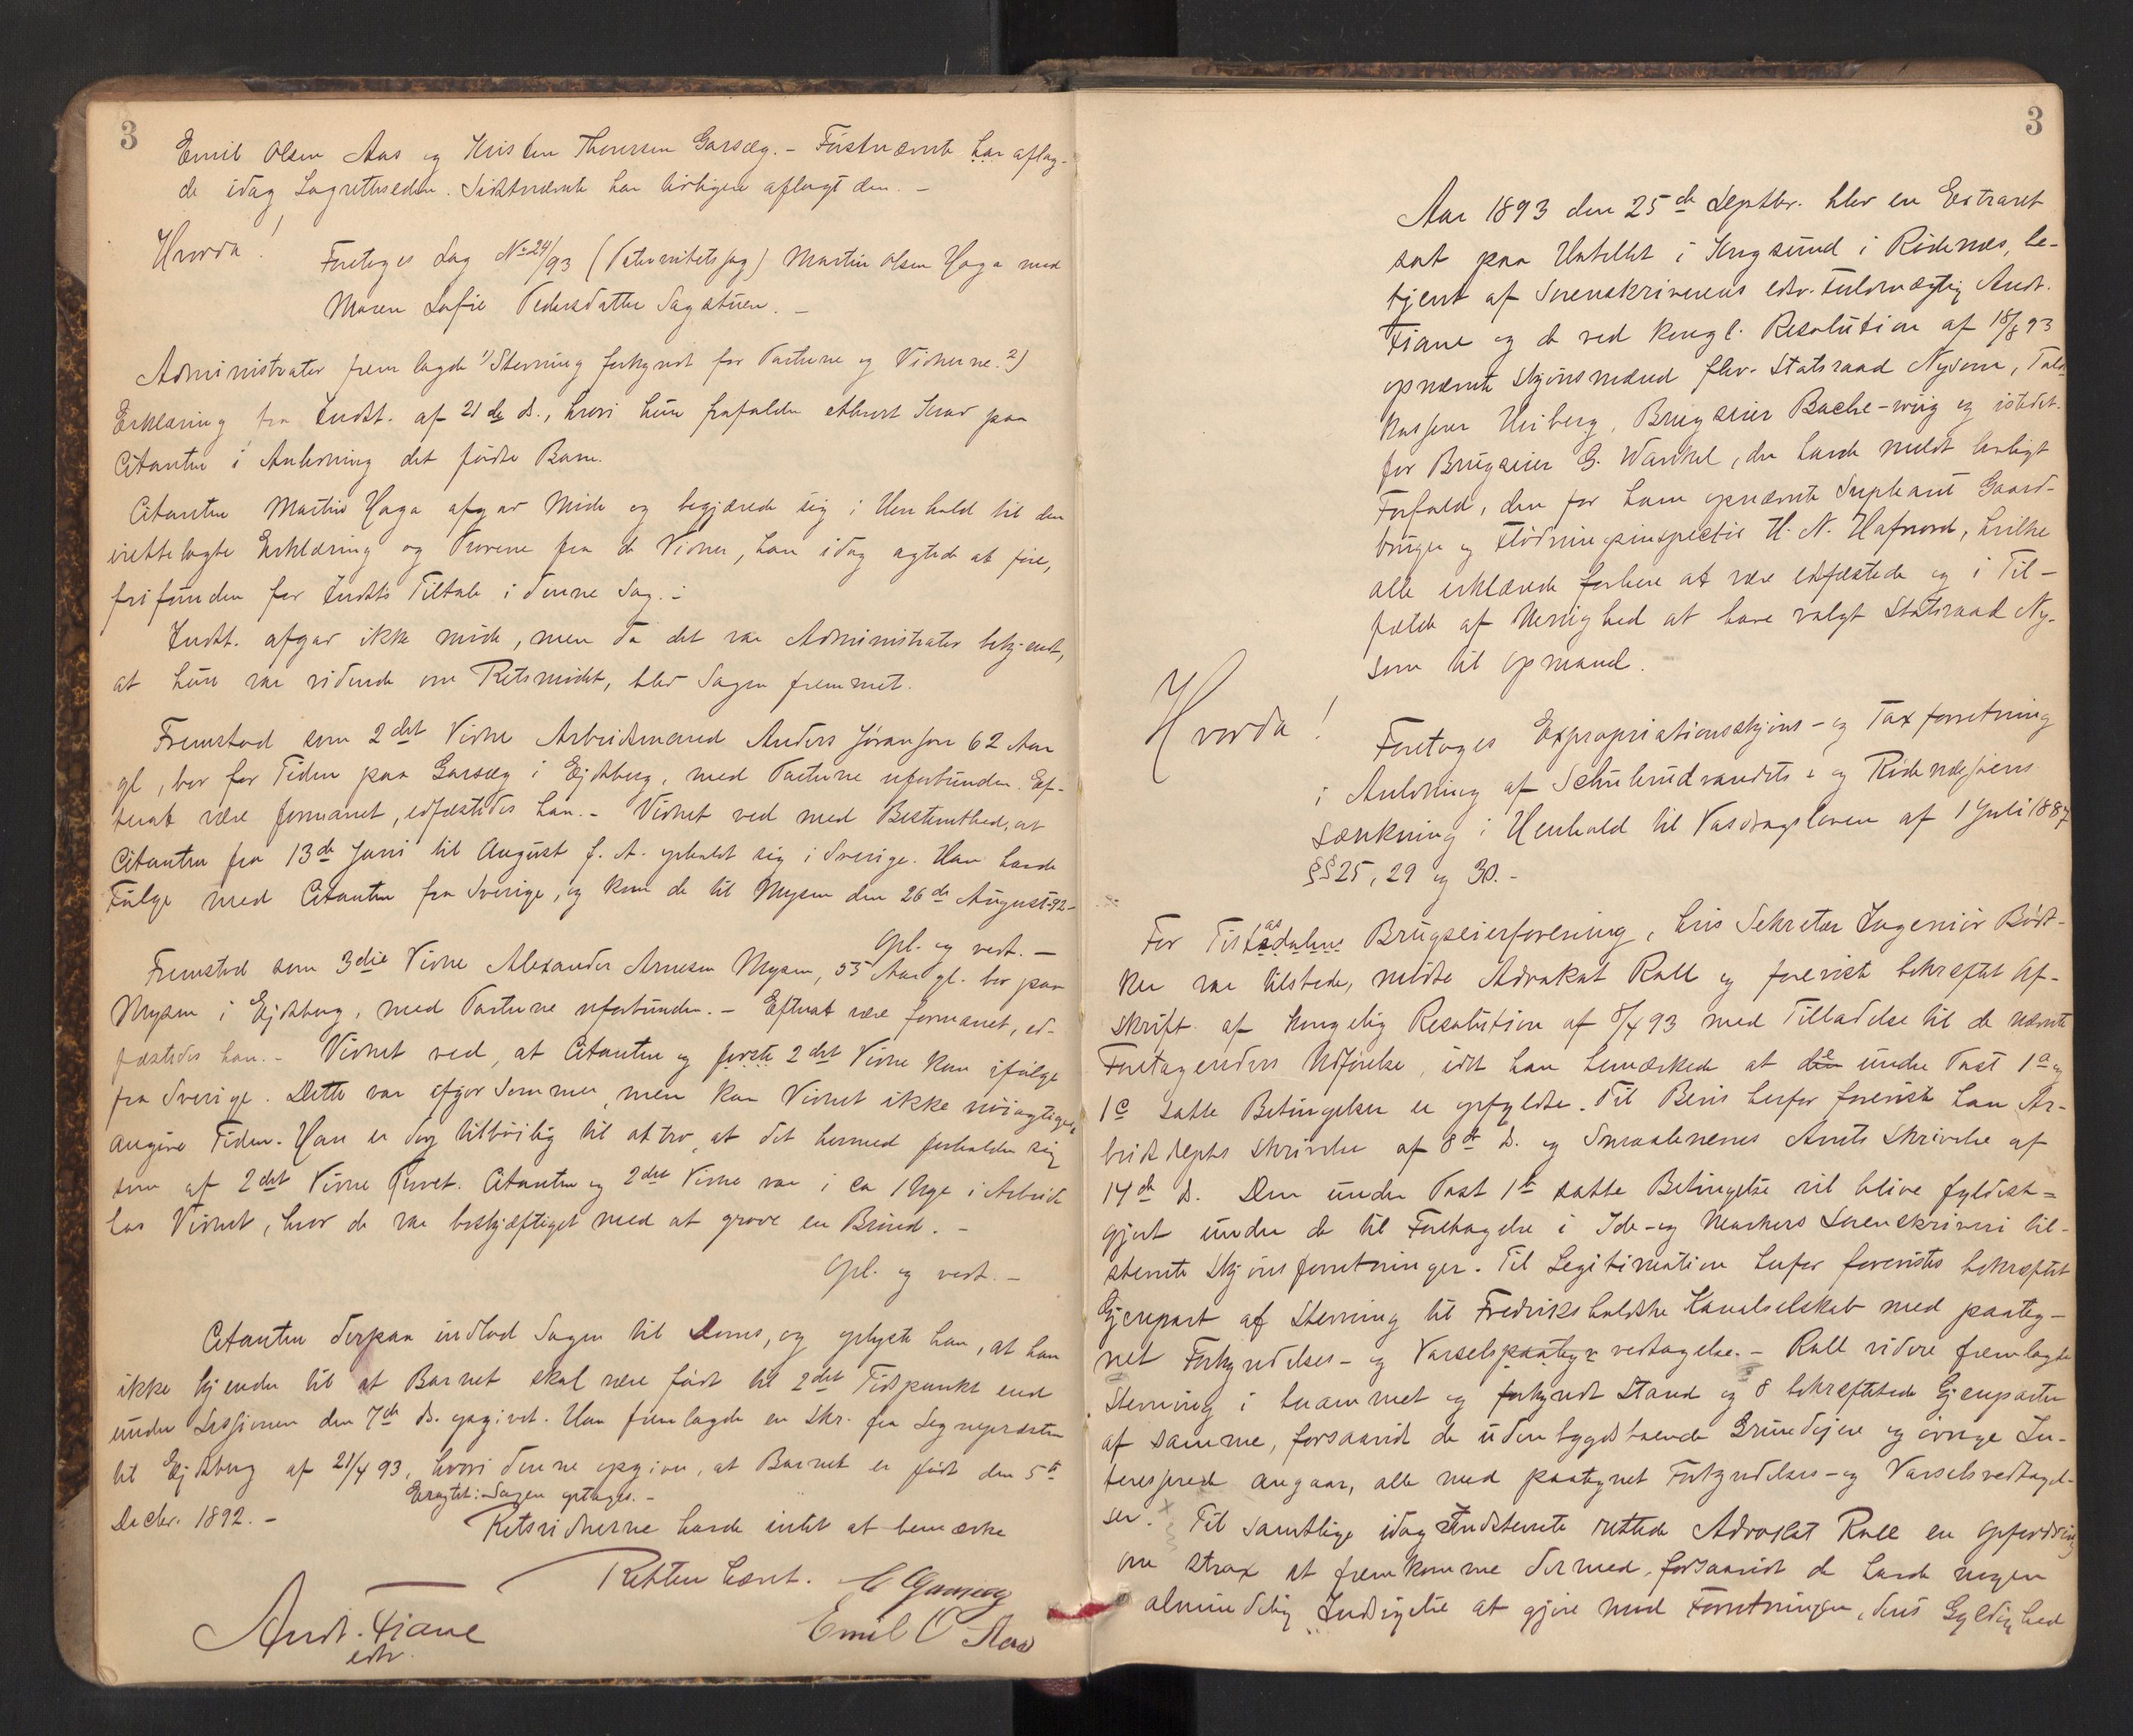 3
Emil Olsen Aas og Kristen Thoresen Garsæg. – Førstnævnte har aflag-
de idag Lagretteseden. Sidstnævnte har tidligere aflagt den. –
Hvorda!
Foretoges Sag No 24/93 (Paternitetssag) Martin Olsen Haga mod
Maren Sofie Pedersdatter Sagstuen. –
Administrator fremlagde 1) Stevning forkyndt for Parterne og Vidnerne. 2)
Erklæring fra Indst. af 21de ds., hvori hun frafalder ethvert Krav paa
Citanten i Anledning det fødte Barn.
Citanten Martin Haga afgav Møde og begjærede sig i Henhold til den
irettelagte Erklæring og Provene fra de Vidner, han idag agtede at føre,
frifunden for Indsts Tiltale i denne Sag. –
Indst. afgav ikke møde, men da det var Administrator bekjendt,
at hun var vidende om Retsmødet, blev Sagen fremmet.
Fremstod som 2det Vidne Arbeidsmand Anders Jøransson 62 Aar
gl., bor for Tiden paa Garsæg i Ejdsberg, med Parterne uforbunden. Ef-
terat være formanet, edfæstedes han. – Vidnet ved med Bestemthed, at
Citanten fra 13de Juni til August f. A. opholdt sig i Sverige. Han havde
Følge med Citanten fra Sverige, og kom de til Mysen den 26de August 92 –
Opl. og vedt. –
Fremstod som 3die Vidne Alexander Arnesen Mysen, 55 Aar gl. bor paa
Mysen i Ejdsberg, med Parterne uforbunden. – Efterat være formanet, ed-
fæstedes han. – Vidnet ved, at Citanten og første 2det Vidne kom ifølge
fra Sverige. Dette var ifjor Sommer, men kan Vidnet ikke nøiagtigere
angive Tiden. Han er dog tilbøilig til at tro, at det hermed forholder sig
som af 2det Vidne provet. Citanten og 2det Vidne var i ca 1 Uge i Arbeide
hos Vidnet, hvor de var beskjæftiget med at grave en Brønd. –
Opl. og vedt. –
Citanten derpaa indlod Sagen til Doms, og oplyste han, at han
ikke kjender til at Barnet skal være født til 2det Tidspunkt end
under Sessionen den 7de ds. opgivet. Han fremlagde en Skr. fra Sognepræsten
til Ejdsberg af 21/4 93, hvori denne opgiver, at Barnet er født den 5te
Decbr. 1892. –
Eragtet: Sagen optages. –
Retsvidnerne havde intet at bemærke
Retten hævet.
Andr. Fiane
edv.
Emil O Aas
3
Aar 1893 den 25de Septbr. blev en Extraret
sat paa Hotellet i Krogsund i Rødenæs, be-
tjent af Sorenskriverens edsv. Fuldmægtig Andr.
Fiane og de ved kongl. Resolution af 18/8 93
opnævnte Skjønsmænd fhv. Statsraad Nysom, Told-
kasserer Heiberg, Brugseier Bache-Wiig og istedet-
for Brugseier G. Wankel, der havde meldt lovligt
Forfald, den for ham opnævnte Supleant Gaard-
bruger og Flødningsinspectør H. N. Hafnord, hvilke
alle erklærede forhen at være edfæstede og i Til-
fælde af Uenighed at have valgt Statsraad Ny-
som til Opmand.
Hvorda!
Foretoges Expropriationsskjøns- og Taxforretning
i Anledning af Schulerudvandets – og Rødenæssjøens
Sænkning i Henhold til Vasdragsloven af 1 Juli 1887
§§ 25, 29 og 30. –
For Tistedalens Brugseierforening, hvis Sekretær Ingeniør Bødt-
ker var tilstede, mødte Advokat Roll og foreviste bekræftet Af-
skrift af kongelig Resolution af 8/4 93 med Tilladelse til de nævnte
Foretagenders Udførelse, idet han bemærkede at de under Post 1a og
1c satte Betingelser er opfyldte. Til Bevis herfor foreviste han Ar-
beidsdepts Skrivelse af 8de ds. og Smaalenenes Amts Skrivelse af
14de ds. Den under Post 1b satte Betingelse vil blive fyldest-
gjort under de til Foretagelse i Ide- og Markers Sorenskriveri til-
stevnte Skjønsforretninger. Til Legitimation herfor forevistes bekræftet
Gjenpart af Stevning til Fredrikshaldske Kanalselskab med paateg-
net Forkyndelses- og Varselsvedtagelse. – Roll videre fremlagde
Stevning i beramet og forkyndt Stand og 8 bekræftede Gjenparter
af samme, forsaavidt de udenbygds boende Grundejere og øvrige In-
teresserede angaar, alle med paategnet Forkyndelses- og Varselsvedtagel-
ser. Til samtlige idag Indstevnte rettede Advokat Roll en Opfordring
om strax at fremkomme dermed, forsaavidt de havde nogen
almindelig Indsigelse at gjøre mod Forretningen, dens Gyldighed